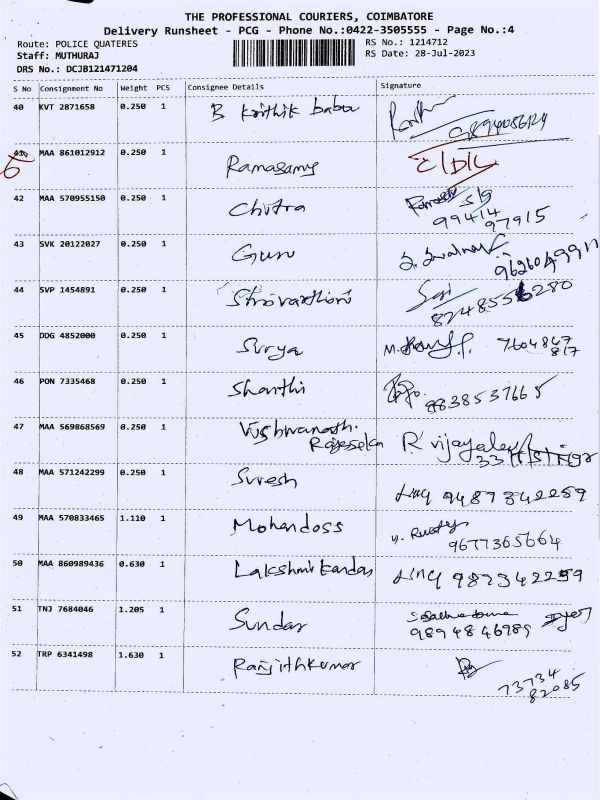 THE PROFESSIONAL COURIERS, COIMBATORE
Delivery Runsheet - PCG - Phone No.:0422-3505555 - Page No.:4
Route: POLICE QUATERES RS No.: 1214712
Staff: MUTHURAJ RS Date: 28-Jul-2023
DRS No.: DCJB121471204
S No Consignment No Weight PCS Consignee Details Signature
40 KVT 2871658 0.250 1 B Krithik babu
41 MAA 861012912 0.250 1 Ramasamy
42 MAA 570955150 0.250 1 Chitra
99414
97915
43 SVK 20122027 0.250 1 Guru
44 SVP 1454891 0.250 1
45 DDG 4852000 0.250 1 Surya 7604867
817
46 PON 7335468 0.250 1 Shanthi 8838537665
47 MAA 569868569 0.250 1 Vishwanath.
R Vijayalay
48 MAA 571242299 0.250 1 Suresh 9487342259
49 MAA 570833465 1.110 1 Mohandoss
9677365664
50 MAA 860989436 0.630 1 Lakshmikandan
51 TNJ 7684046 1.205 1 Sundar
9894846989
52 TRP 6341498 1.630 1 Ranjithkumar
73734
82085